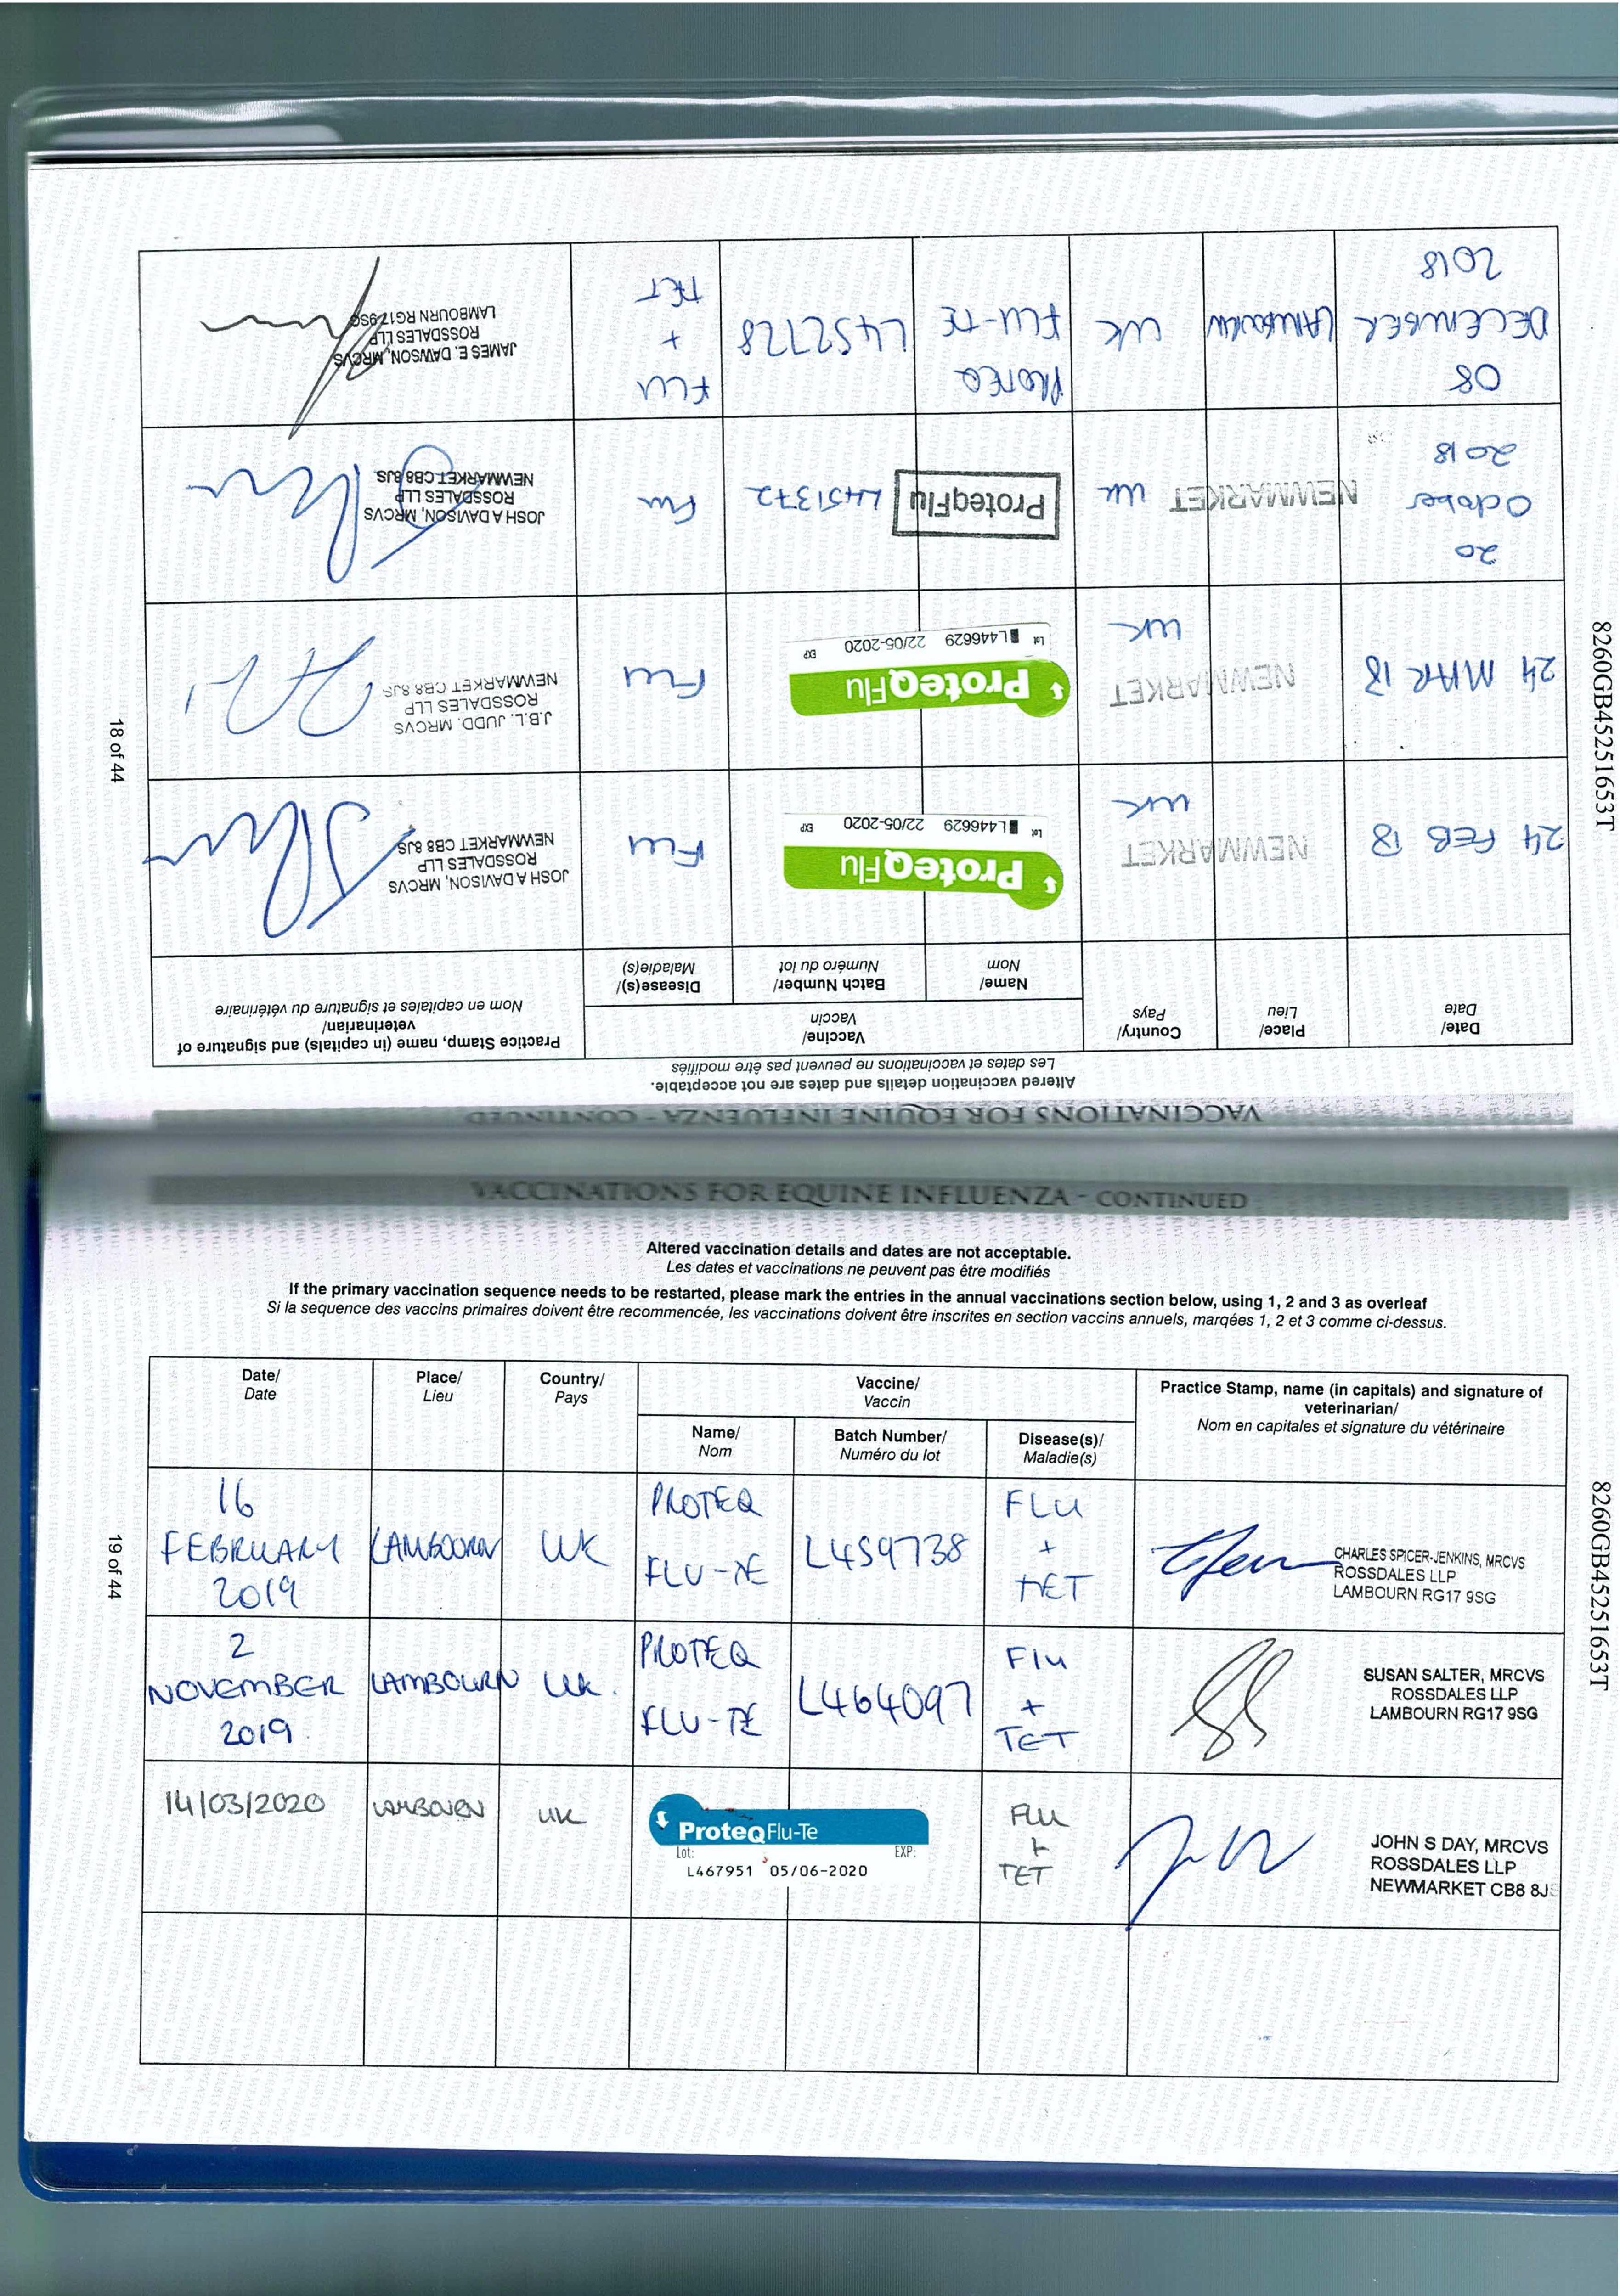 8260GB45251653T
VACCINATIONS FOR EQUINE INFLUENZA - CONTINUED
Altered vaccination details and dates are not acceptable.
Les dates et vaccinations ne peuvent pas être modifiés
Date/
Date
Place/
Lieu
Country/
Pays
Vaccine/
Vaccin
Name/
Nom
Batch Number/
Numéro du lot
Disease(s)/
Maladie(s)
Practice Stamp, name (in capitals) and signature of
veterinarian/
Nom en capitales et signature du vétérinaire
24 FEB 18
NEWMARKET
UK
ProteqFlu
Lot L446629 22/05-2020 EXP
FLU
JOSH A DAVISON, MRCVS
ROSSDALES LLP
NEWMARKET CB8 8JS
24 MAR 18
NEWMARKET
UK
ProteqFlu
Lot L446629 22/05-2020 EXP
FLU
J.B.L. JUDD. MRCVS
ROSSDALES LLP
NEWMARKET CB8 8JS
20
October
2018
NEWMARKET
UK
ProteqFlu
L451372
Flu
JOSH A DAVISON, MRCVS
ROSSDALES LLP
NEWMARKET CB8 8JS
08
DECEMBER
2018
LAMBOURN
UK
PROTEQ
FLU-TE
L452728
FLU
+
TET
JAMES E. DAWSON, MRCVS
ROSSDALES LLP
LAMBOURN RG17 9SG
18 of 44
VACCINATIONS FOR EQUINE INFLUENZA - CONTINUED
Altered vaccination details and dates are not acceptable.
Les dates et vaccinations ne peuvent pas être modifiés
If the primary vaccination sequence needs to be restarted, please mark the entries in the annual vaccinations section below, using 1, 2 and 3 as overleaf
Si la sequence des vaccins primaires doivent être recommencée, les vaccinations doivent être inscrites en section vaccins annuels, marqées 1, 2 et 3 comme ci-dessus.
Date/
Date
Place/
Lieu
Country/
Pays
Vaccine/
Vaccin
Name/
Nom
Batch Number/
Numéro du lot
Disease(s)/
Maladie(s)
Practice Stamp, name (in capitals) and signature of
veterinarian/
Nom en capitales et signature du vétérinaire
16
FEBRUARY
2019
LAMBOURN
UK
PROTEQ
FLU-TE
L459738
FLU
+
TET
CHARLES SPICER-JENKINS, MRCVS
ROSSDALES LLP
LAMBOURN RG17 9SG
2
NOVEMBER
2019
LAMBOURN
UK.
PROTEQ
FLU-TE
L464097
Flu
+
TET
SUSAN SALTER, MRCVS
ROSSDALES LLP
LAMBOURN RG17 9SG
14/03/2020
LAMBOURN
UK
ProteqFlu-Te
Lot: EXP:
L467951 05/06-2020
FLU
+
TET
JOHN S DAY, MRCVS
ROSSDALES LLP
NEWMARKET CB8 8JS
19 of 44
8260GB45251653T